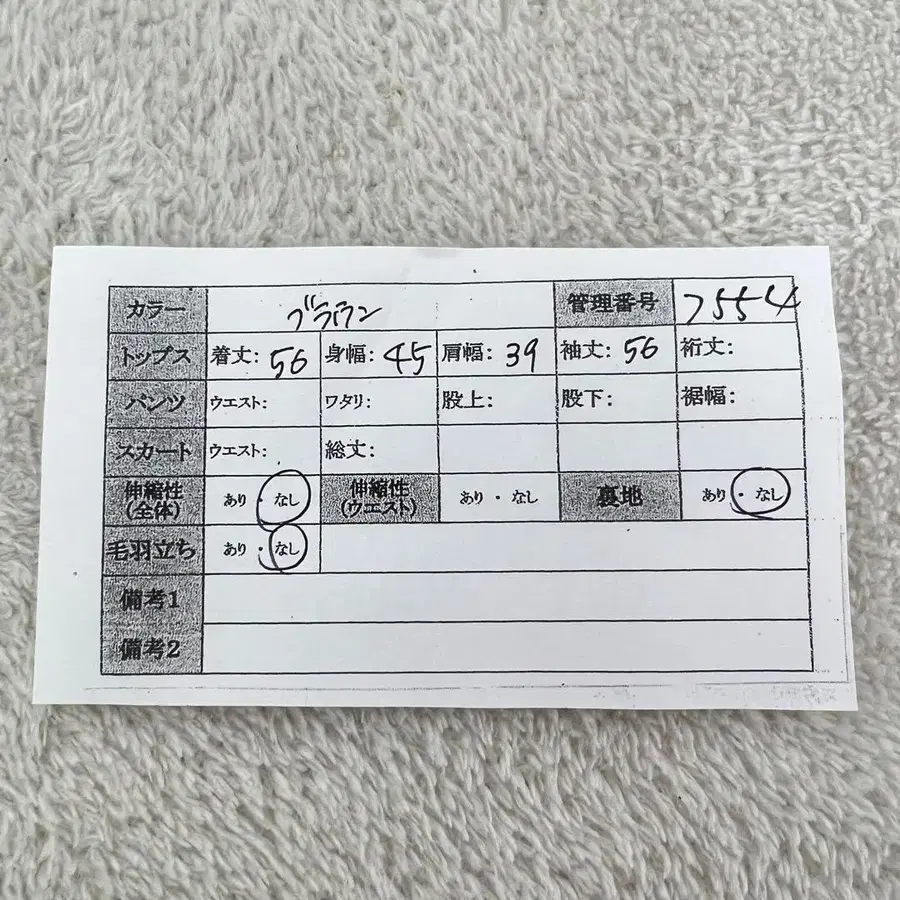 カラー ブラウン 管理番号 7554
トップス 着丈: 56 身幅: 45 肩幅: 39 袖丈: 56 裄丈:
パンツ ウエスト: ワタリ: 股上: 股下: 裾幅:
スカート ウエスト: 総丈:
伸縮性(全体) あり・なし 伸縮性(ウエスト) あり・なし 裏地 あり・なし
毛羽立ち あり・なし
備考1
備考2